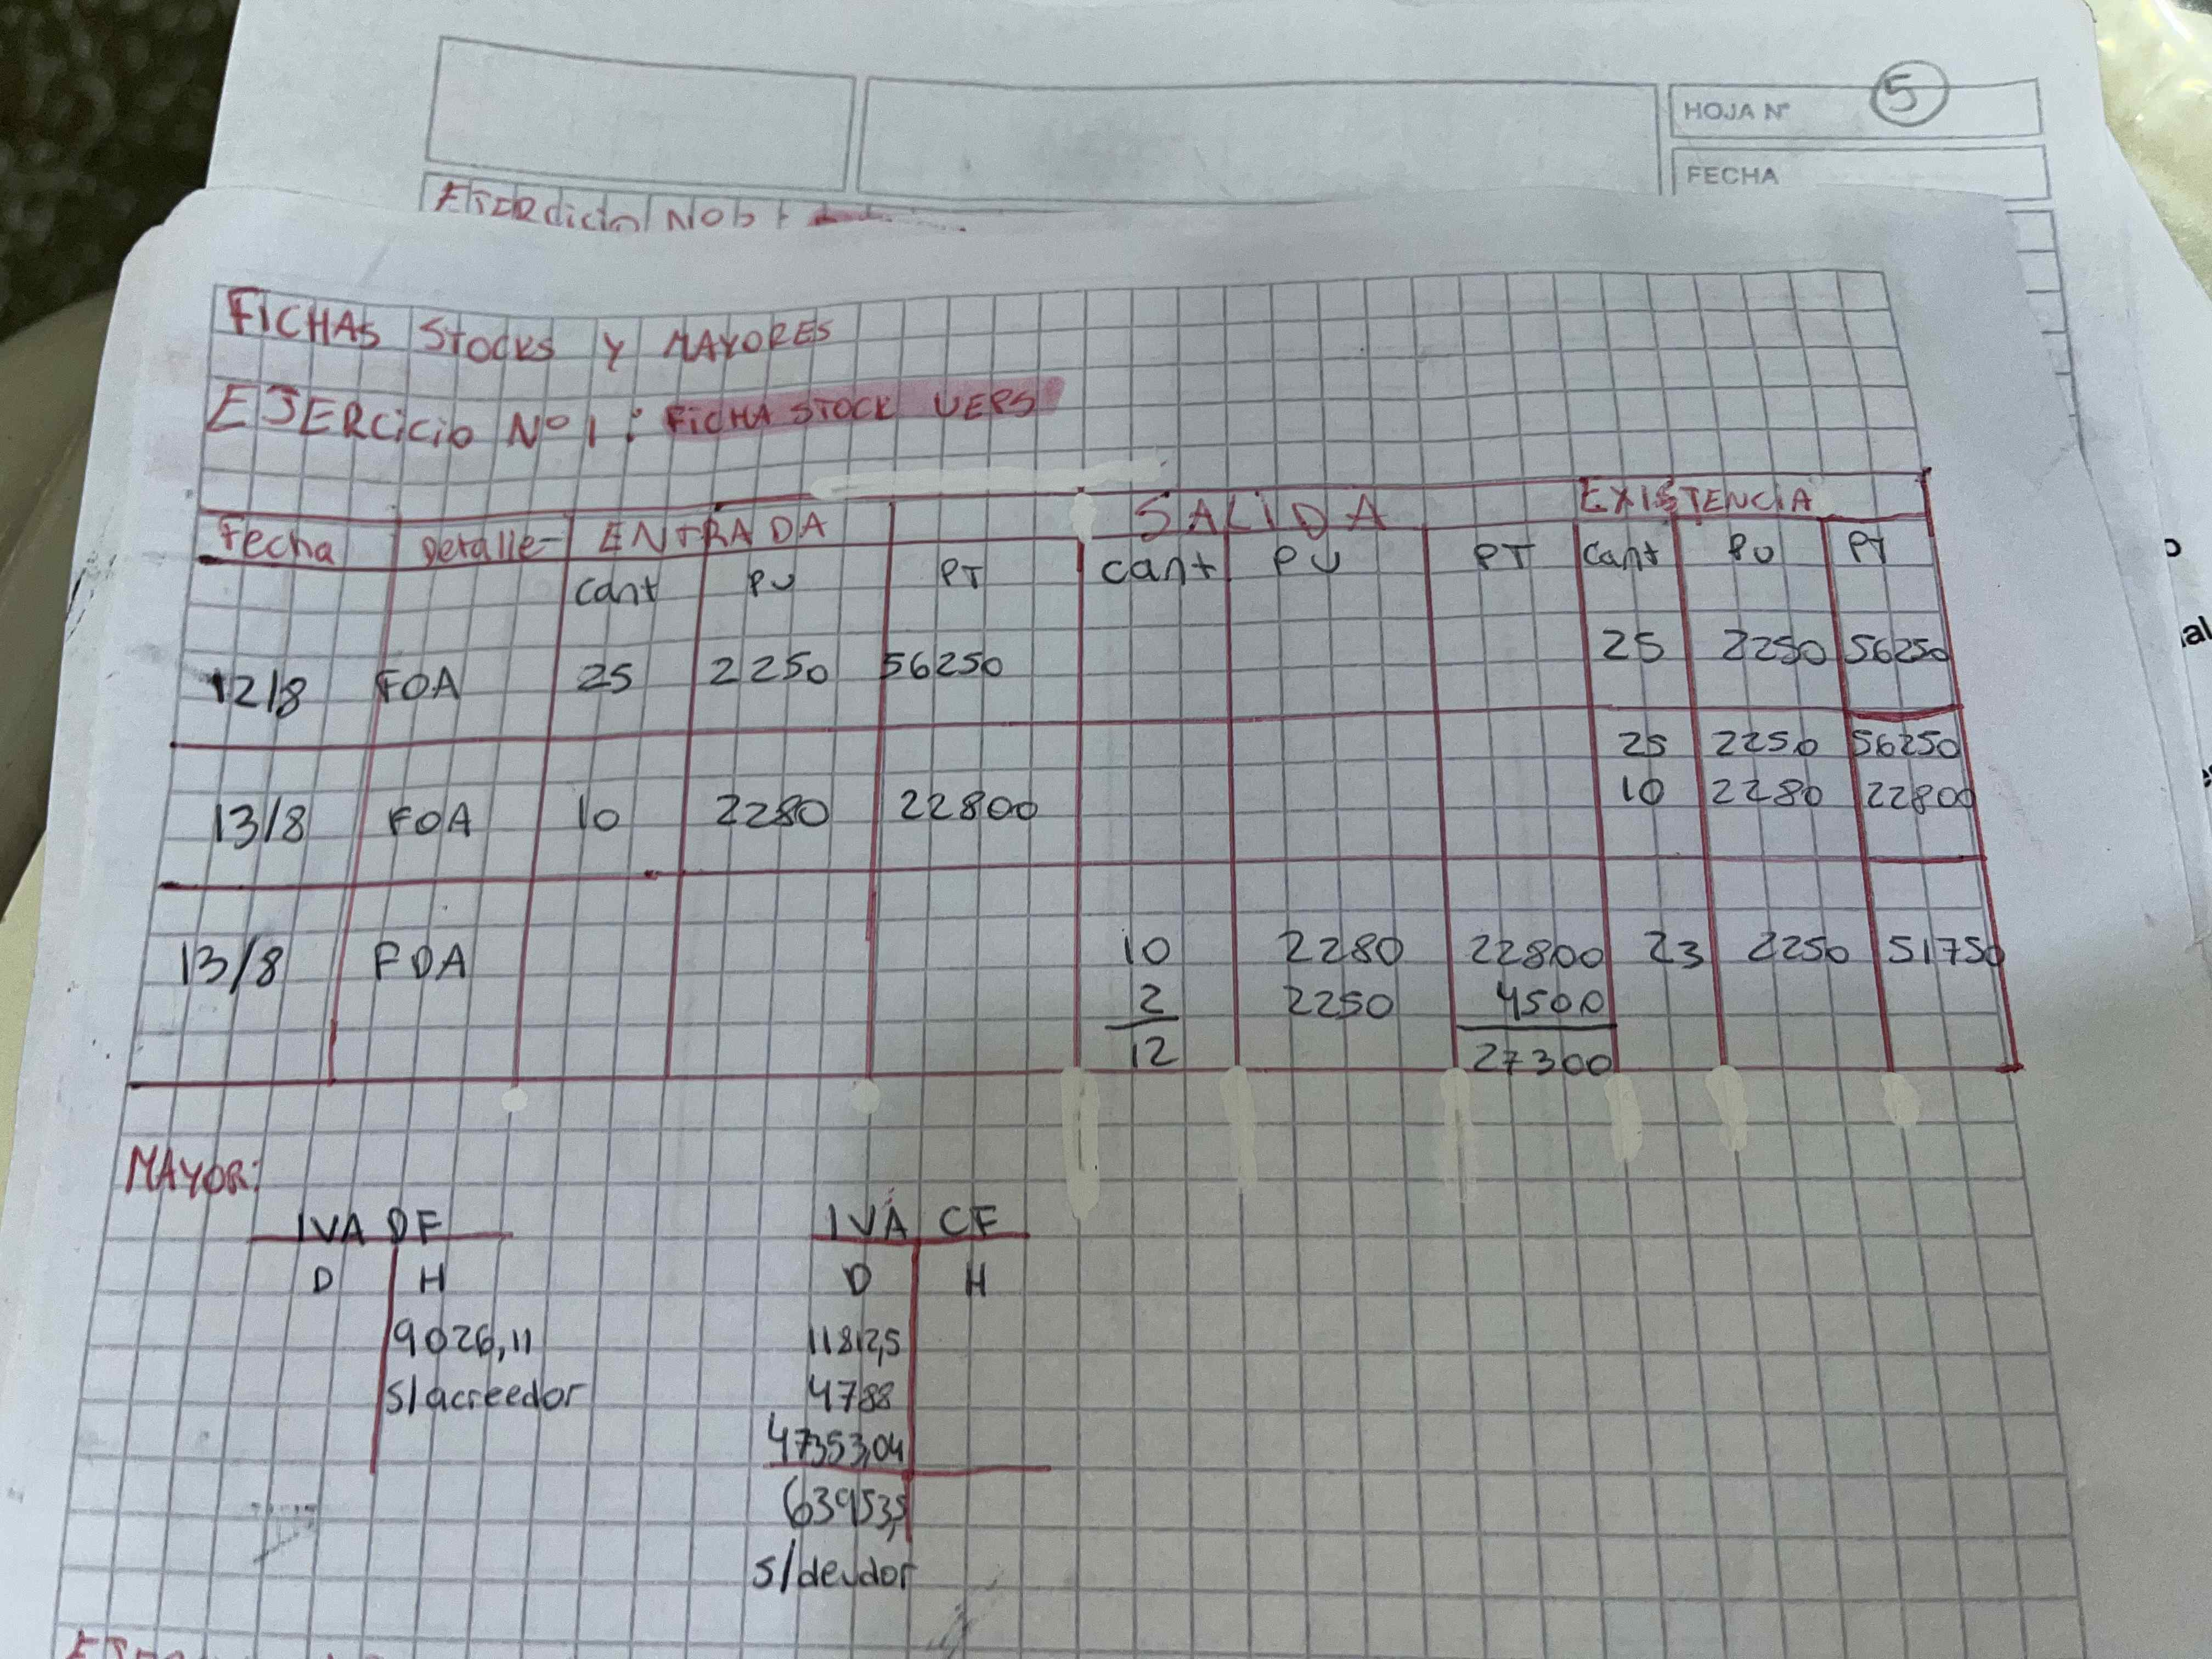 HOJA N° 5
FECHA
FICHAS STOCKS Y MAYORES
EJERCICIO Nº1: FICHA STOCK UEPS
Fecha Detalle ENTRADA SALIDA EXISTENCIA
cant PU PT cant PU PT Cant PU PT
12/8 FOA 25 2250 56250 25 2250 56250
25 2250 56250
13/8 FOA 10 2280 22800 10 2280 22800
13/8 FDA 10 2280 22800 23 2250 51750
2 2250 4500
12 27300
MAYOR:
IVA DF IVA CF
D H D H
9026,11 11812,5
s/acreedor 4788
47353,04
63953,5
s/deudor